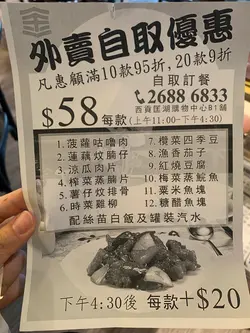 外賣自取優惠
凡惠顧滿10款95折,20款9折
自取訂餐
2688 6833
西貢匡湖購物中心B1舖
$58 每款(上午11:00-下午4:30)
1.菠蘿咕嚕肉
2.蓮藕炆腩仔
3.涼瓜肉片
4.榨菜蒸腩片
5.薯仔炆排骨
6.時菜雞柳
7.欖菜四季豆
8.漁香茄子
9.紅燒豆腐
10.梅菜蒸鯇魚
11.粟米魚塊
12.糖醋魚塊
配絲苗白飯及罐裝汽水
下午4:30後 每款+$20